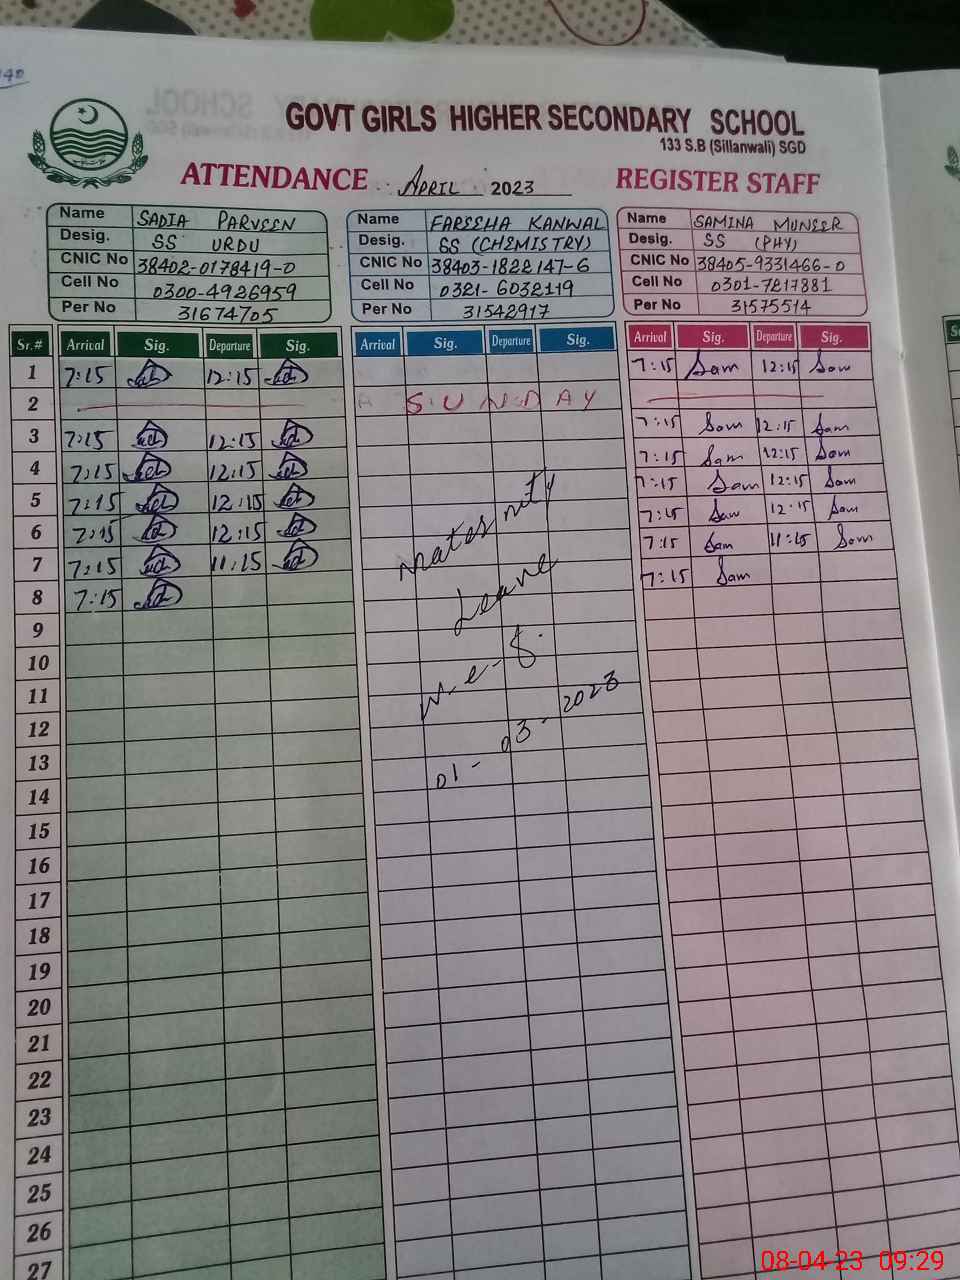 GOVT GIRLS HIGHER SECONDARY SCHOOL
133 S.B (Sillanwali) SGD
ATTENDANCE APRIL 2023 REGISTER STAFF
Name SADIA PARVEEN
Desig. SS URDU
CNIC No 38402-0178419-0
Cell No 0300-4926959
Per No 31674705
Name FAREEHA KANWAL
Desig. SS (CHEMISTRY)
CNIC No 38403-1822147-6
Cell No 0321-6032119
Per No 31542917
Name SAMINA MUNEER
Desig. SS (PHY)
CNIC No 38405-9331466-0
Cell No 0301-7217881
Per No 31575514
Sr.# Arrival Sig. Departure Sig. Arrival Sig. Departure Sig. Arrival Sig. Departure Sig.
1 7:15 12:15 7:15 Sam 12:15 Sam
2 SUNDAY
3 7:15 12:15 7:15 Sam 12:15 Sam
4 7:15 12:15 7:15 Sam 12:15 Sam
5 7:15 12:15 7:15 Sam 12:15 Sam
6 7:15 12:15 7:15 Sam 12:15 Sam
7 7:15 11:15 7:15 Sam 11:15 Sam
8 7:15 7:15 Sam
Maternity
Leave
w.e.f.
01-03-2023
9
10
11
12
13
14
15
16
17
18
19
20
21
22
23
24
25
26
27
08-04-23 09:29